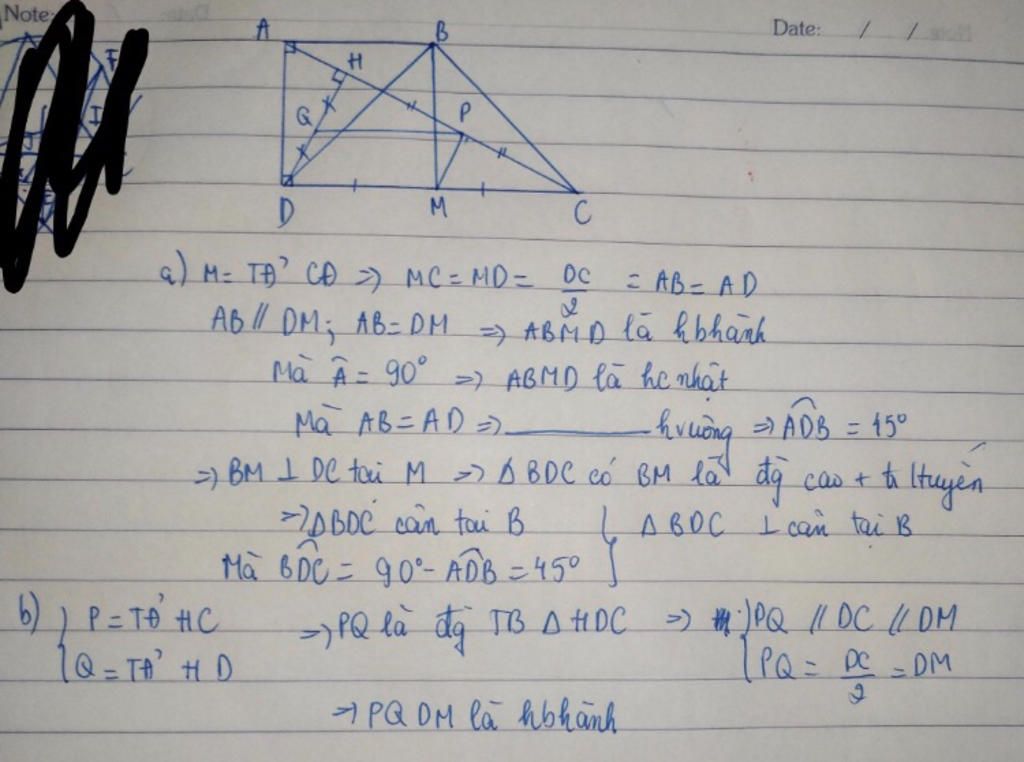 Note:
Date: / /
A B
H
Q P
D M C
a) M = TĐ' CD => MC = MD = DC/2 = AB = AD
AB // DM; AB = DM => ABMD là hbhành
Mà Â = 90° => ABMD là hc nhật
Mà AB = AD => ________ hvuông => ADB = 45°
=> BM ⊥ DC tại M => Δ BDC có BM là đg cao + tr/tuyến
=> ΔBDC cân tại B } Δ BDC ⊥ cân tại B
Mà BDC = 90° - ADB = 45°
b) { P = TĐ' HC => PQ là đg TB Δ HDC => { PQ // DC // DM
Q = TĐ' HD PQ = DC/2 = DM
=> PQDM là hbhành